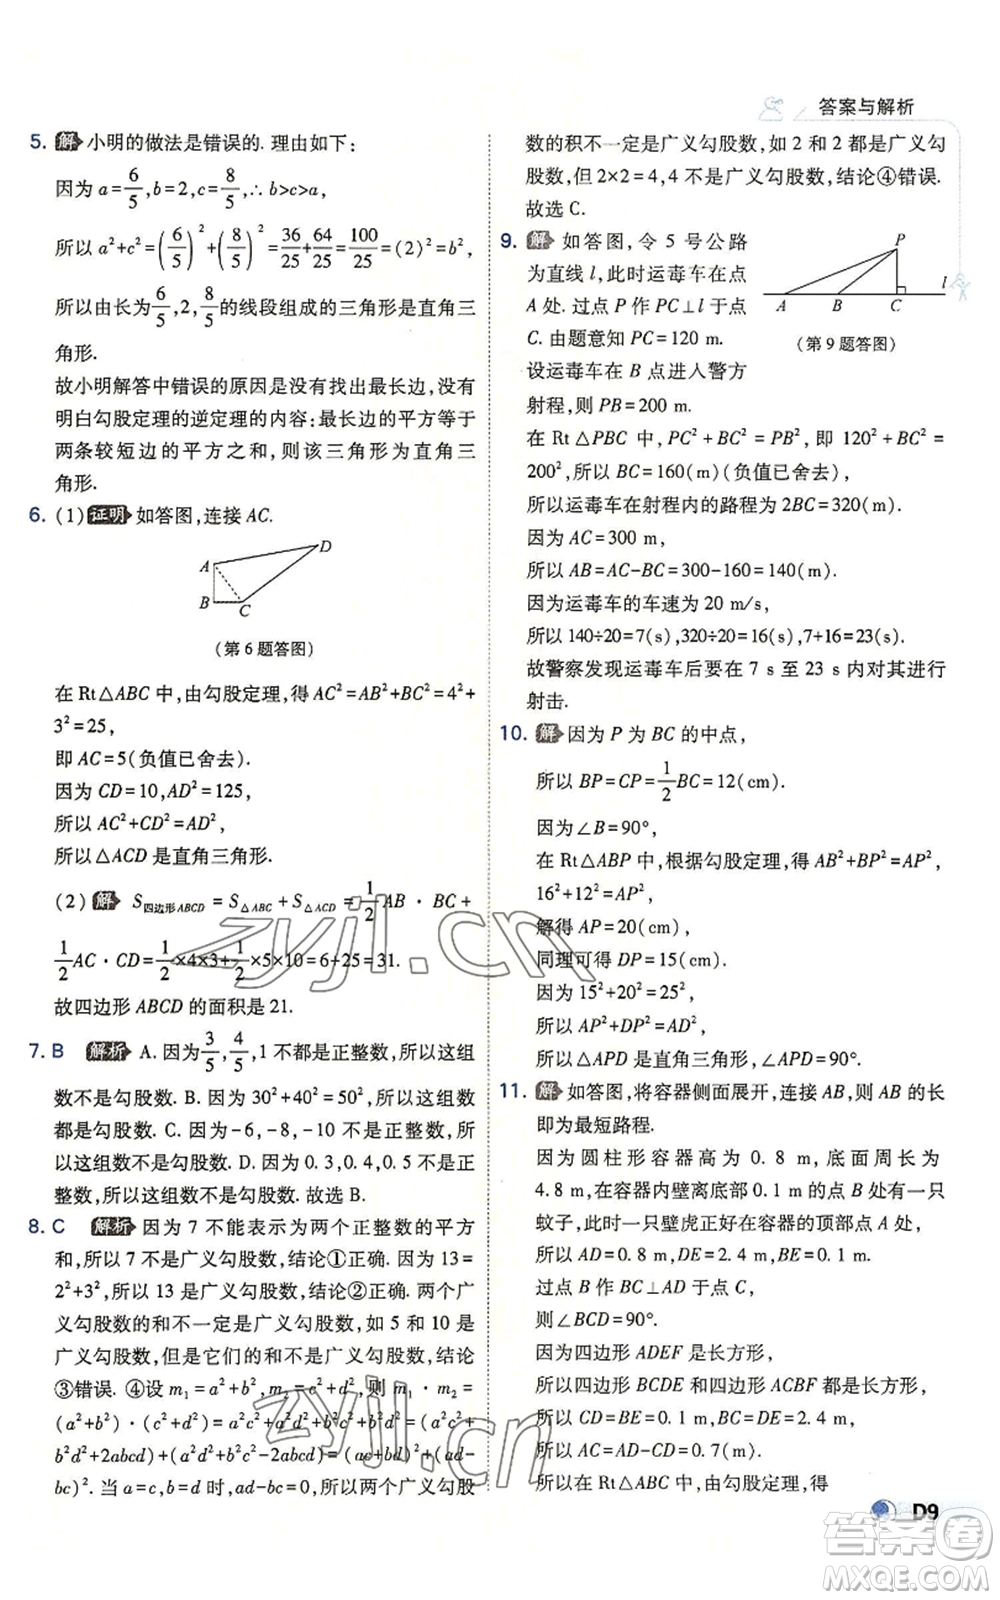 答案与解析
5. 解 小明的做法是错误的. 理由如下:
因为 a=6/5, b=2, c=8/5, ∴ b>c>a,
所以 a²+c²=(6/5)²+(8/5)²=36/25+64/25=100/25=(2)²=b²,
所以由长为6/5,2,8/5的线段组成的三角形是直角三
角形.
故小明解答中错误的原因是没有找出最长边,没有
明白勾股定理的逆定理的内容:最长边的平方等于
两条较短边的平方之和,则该三角形为直角三
角形.
6. (1) 证明 如答图,连接 AC.
A
B
C
D
(第 6 题答图)
在 Rt△ABC 中,由勾股定理,得 AC²=AB²+BC²=4²+
3²=25,
即 AC=5(负值已舍去).
因为 CD=10,AD²=125,
所以 AC²+CD²=AD²,
所以△ACD 是直角三角形.
(2) 解 S四边形ABCD=S△ABC+S△ACD=1/2AB·BC+
1/2AC·CD=1/2×4×3+1/2×5×10=6+25=31.
故四边形 ABCD 的面积是 21.
7. B 解析 A. 因为3/5,4/5,1 不都是正整数,所以这组
数不是勾股数. B. 因为 30²+40²=50²,所以这组数
都是勾股数. C. 因为-6,-8,-10 不是正整数,所
以这组数不是勾股数. D. 因为 0.3,0.4,0.5 不是正
整数,所以这组数不是勾股数. 故选 B.
8. C 解析 因为 7 不能表示为两个正整数的平方
和,所以 7 不是广义勾股数,结论①正确. 因为 13=
2²+3²,所以 13 是广义勾股数,结论②正确. 两个广
义勾股数的和不一定是广义勾股数,如 5 和 10 是
广义勾股数,但是它们的和不是广义勾股数,结论
③错误. ④设 m₁=a²+b²,m₂=c²+d²,则 m₁·m₂=
(a²+b²)·(c²+d²)=a²c²+a²d²+b²c²+b²d²=(a²c²+
b²d²+2abcd)+(a²d²+b²c²-2abcd)=(ac+bd)²+(ad-
bc)². 当 a=c,b=d 时,ad-bc=0,所以两个广义勾股
数的积不一定是广义勾股数,如 2 和 2 都是广义勾
股数,但 2×2=4,4 不是广义勾股数,结论④错误.
故选 C.
9. 解 如答图,令 5 号公路
为直线 l,此时运毒车在点
A 处. 过点 P 作 PC⊥l 于点
C. 由题意知 PC=120 m.
设运毒车在 B 点进入警方
射程,则 PB=200 m.
P
A
B
C
l
(第 9 题答图)
在 Rt△PBC 中,PC²+BC²=PB²,即 120²+BC²=
200²,所以 BC=160(m)(负值已舍去),
所以运毒车在射程内的路程为 2BC=320(m).
因为 AC=300 m,
所以 AB=AC-BC=300-160=140(m).
因为运毒车的车速为 20 m/s,
所以 140÷20=7(s),320÷20=16(s),7+16=23(s).
故警察发现运毒车后要在 7 s 至 23 s 内对其进行
射击.
10. 解 因为 P 为 BC 的中点,
所以 BP=CP=1/2BC=12(cm).
因为∠B=90°,
在 Rt△ABP 中,根据勾股定理,得 AB²+BP²=AP²,
16²+12²=AP²,
解得 AP=20(cm),
同理可得 DP=15(cm).
因为 15²+20²=25²,
所以 AP²+DP²=AD²,
所以△APD 是直角三角形,∠APD=90°.
11. 解 如答图,将容器侧面展开,连接 AB,则 AB 的长
即为最短路程.
因为圆柱形容器高为 0.8 m,底面周长为
4.8 m,在容器内壁离底部 0.1 m 的点 B 处有一只
蚊子,此时一只壁虎正好在容器的顶部点 A 处,
所以 AD=0.8 m,DE=2.4 m,BE=0.1 m.
过点 B 作 BC⊥AD 于点 C,
则∠BCD=90°.
因为四边形 ADEF 是长方形,
所以四边形 BCDE 和四边形 ACBF 都是长方形,
所以 CD=BE=0.1 m,BC=DE=2.4 m,
所以 AC=AD-CD=0.7(m).
所以在 Rt△ABC 中,由勾股定理,得
D9
zyjl.cn
zyjl.cn
答案圈
MXQE.COM